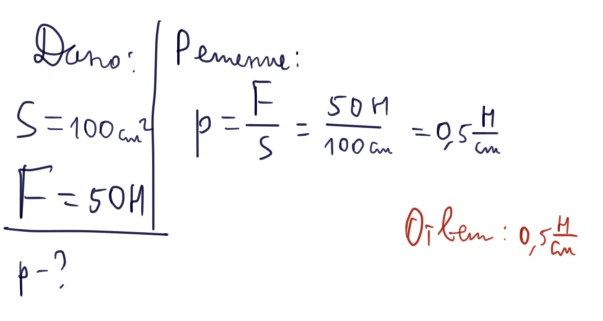 Дано:
S = 100 см²
F = 50 Н
p - ?
Решение:
p = F/S = 50 Н/100 см = 0,5 Н/см
Ответ: 0,5 Н/см